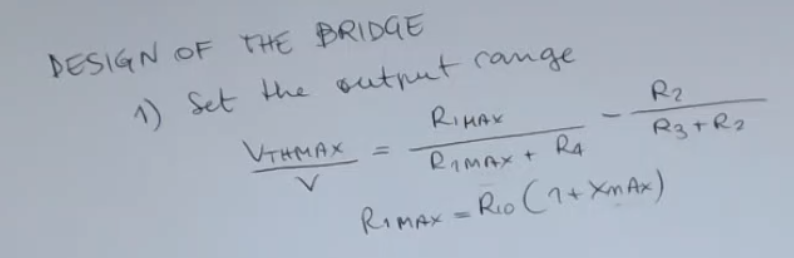 DESIGN OF THE BRIDGE
1) Set the output range
VTHMAX / V = R1MAX / (R1MAX + R4) - R2 / (R3 + R2)
R1MAX = R10 (1 + XMAX)